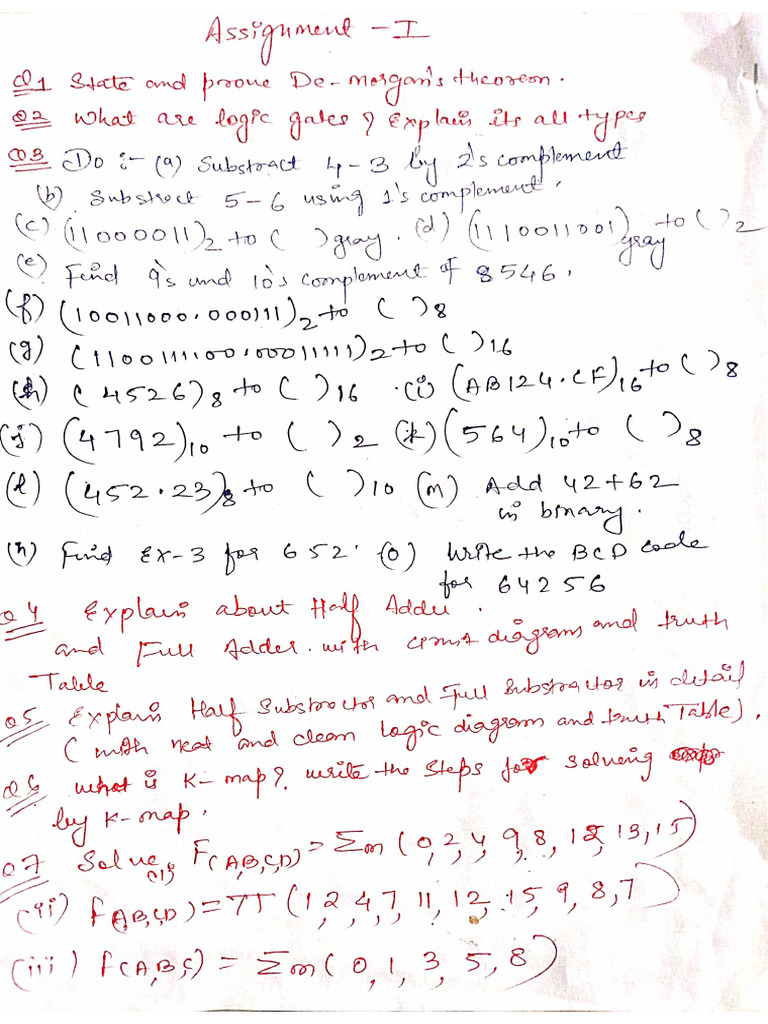 Assignment - I
Q1 State and prove De-morgan's theoreon.
Q2 What are logic gates ? Explain its all types
Q3 Do :- (a) Substract 4-3 by 2's complement
(b) Substract 5-6 using 1's complement.
(c) (11000011)2 to ( )gray. (d) (1110011001)gray to ( )2
(e) Find 9's and 10's complement of 8546.
(f) (10011000.000111)2 to ( )8
(g) (1100111100.00011111)2 to ( )16
(h) (4526)8 to ( )16 . (i) (AB124.CF)16 to ( )8
(j) (4792)10 to ( )2 (k) (564)10 to ( )8
(l) (452.23)8 to ( )10 (m) Add 42+62
in binary.
(n) Find Ex-3 for 652. (o) Write the BCD code
for 64256
Q4 Explain about Half Adder.
and Full Adder. with diagram and truth
Table
Q5 Explain Half Substractor and Full Substractor in detail
(with neat and clean logic diagram and truth Table).
Q6 What is K-map? write the steps for solving
by K-map.
Q7 Solve, (i) F(A,B,C,D) = Σm (0,2,4,9,8,12,13,15)
(ii) f(A,B,C,D) = π (1,2,4,7,11,12,15,9,8,7)
(iii) f(A,B,C) = Σm (0,1,3,5,8)